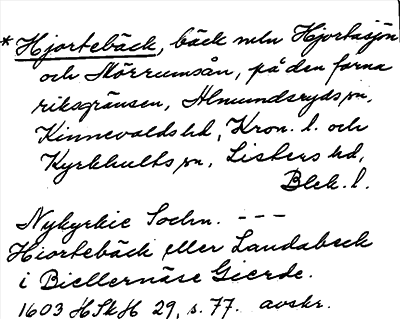 * Hjortebäck, bäck mln Hjortasjön
och Mörrumsån, på den forna
riksgränsen, Almundsryds sn,
Kinnevalds hd, Kron. l. och
Kyrkhults sn, Listers hd,
Blek. l.
Nykyrkie Sochn. ---
Hiortebäck eller Landabeck
i Biellernäse Gierde.
1603 HSkH 29, s. 77. avskr.